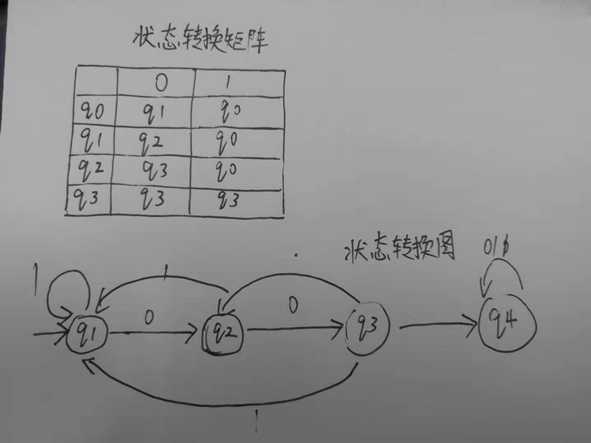 状态转换矩阵
0 1
q0 q1 q0
q1 q2 q0
q2 q3 q0
q3 q3 q3
状态转换图
0/1
1 1
0 0
q1 q2 q3 q4
1